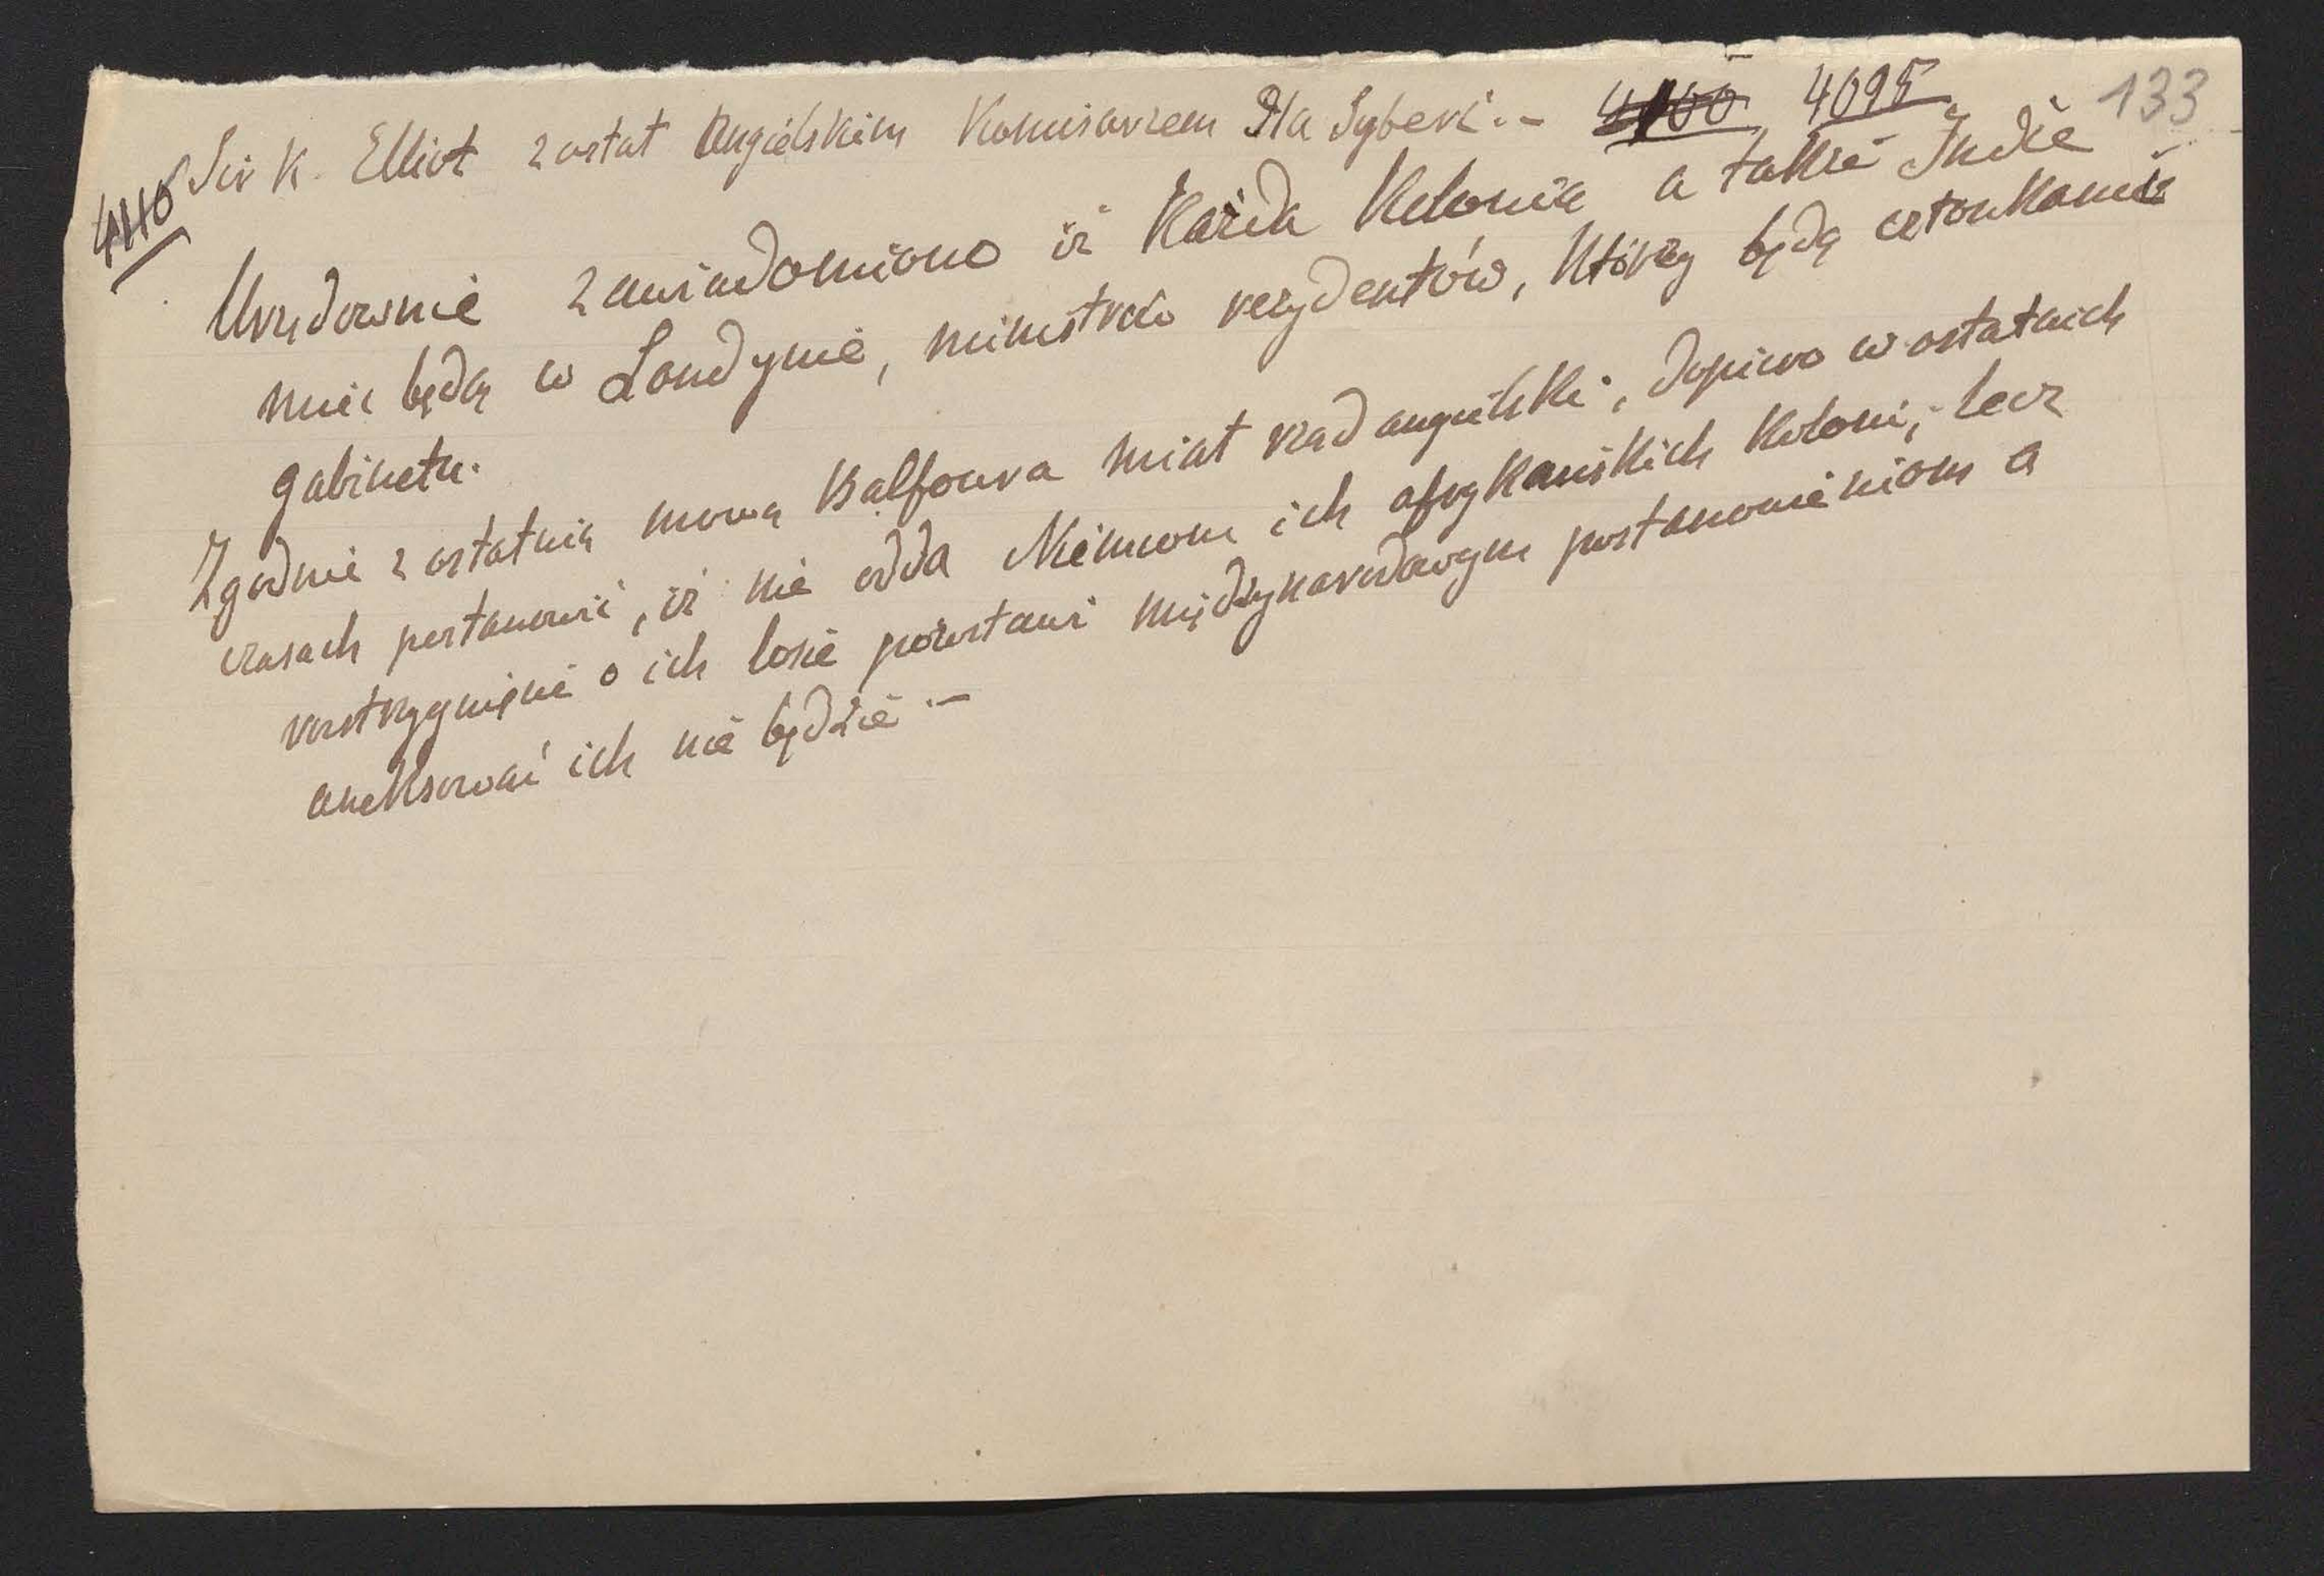 133
4110 Sir K. Elliot został Angielskim Komisarzem Dla Syberi.- 4100 4095
Urzędownie zawiadomiono iż Każda Kolonia a także Indie
mieć będą w Londynie, ministrów rezydentów, Którzy będą członkami
gabinetu.
Zgodnie z ostatnią mową Balfoura miał rząd angielski, dopiero w ostatnich
czasach postanowić, iż nie odda Niemcom ich afrykańskich Koloni, lecz
rozstrzygnięnie o ich losie pozostawi międzynarodowym postanowieniom a
aneksować ich nie będzie -